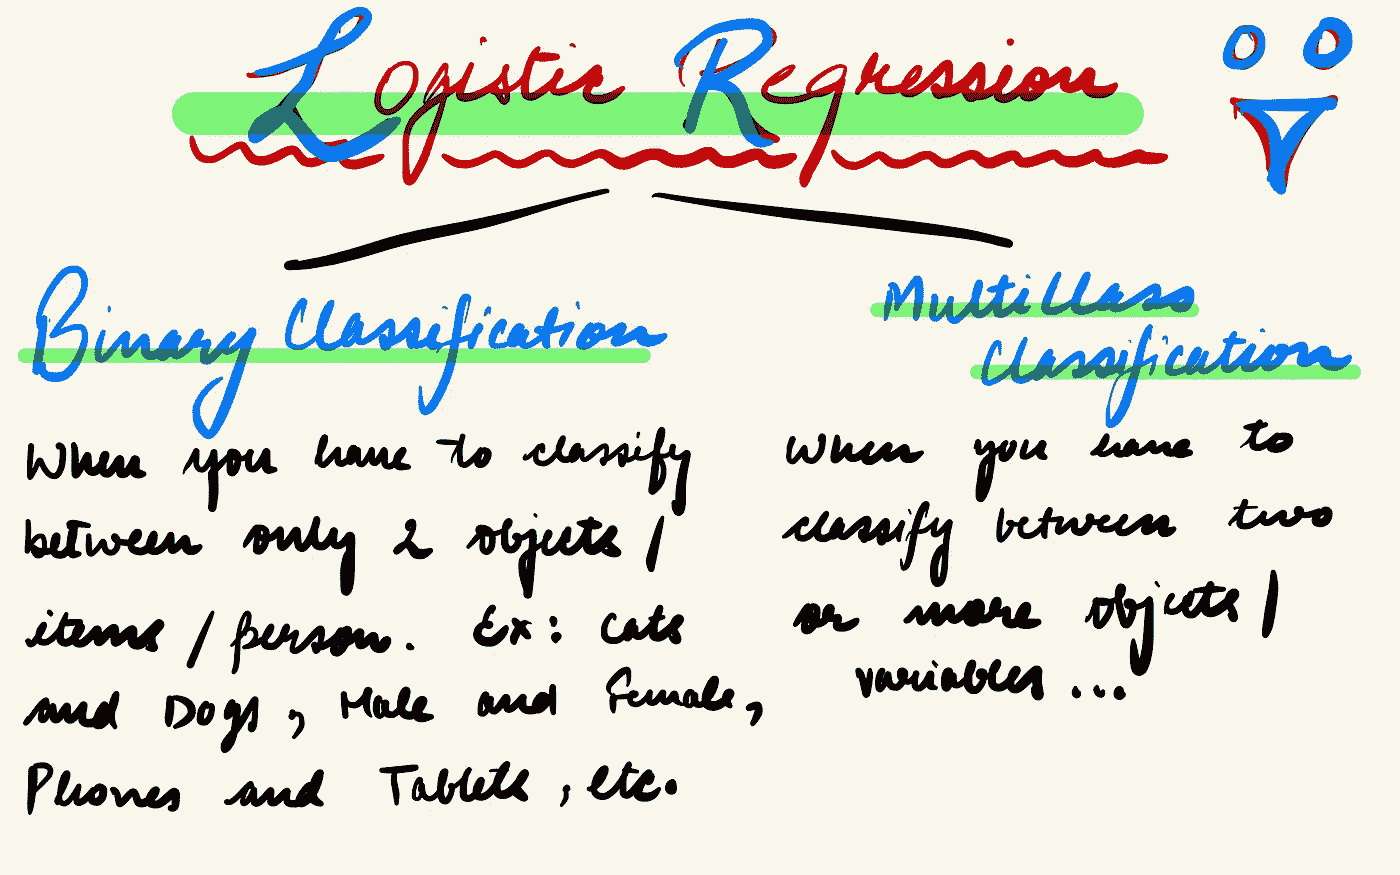 Logistic Regression
Binary Classification
When you have to classify
between only 2 objects /
items / person. Ex: Cats
and Dogs, Male and Female,
Phones and Tablets, etc.
Multiclass
Classification
When you have to
classify between two
or more objects /
variables ...